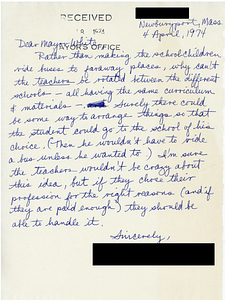 RECEIVED
Newburyport, Mass.
4 April, 1974
MAYOR'S OFFICE
Dear Mayor White
Rather than making the schoolchildren
ride buses to faraway places, why can't
the teachers be rotated between the different
schools – all having the same curriculum
& materials –. Surely there could
be some way to arrange things so that
the student could go to the school of his
choice. (Then he wouldn't have to ride
a bus unless he wanted to.) I'm sure
the teachers wouldn't be crazy about
this idea, but if they chose their
profession for the right reasons (and if
they are paid enough) they should be
able to handle it.
Sincerely,